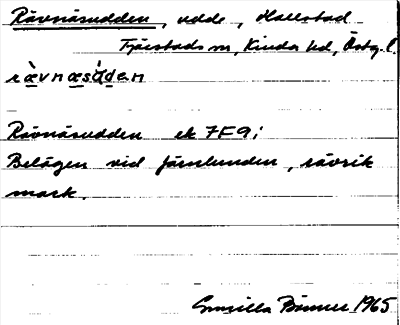 Rävnäsudden, udde, Hallstad
Tjärstads sn, Kinda hd, Östg. l.
rävnæsúden
Rävnäsudden ek 7F9i
Belägen vid Järnlunden, rävrik
mark.
Gunilla 1965